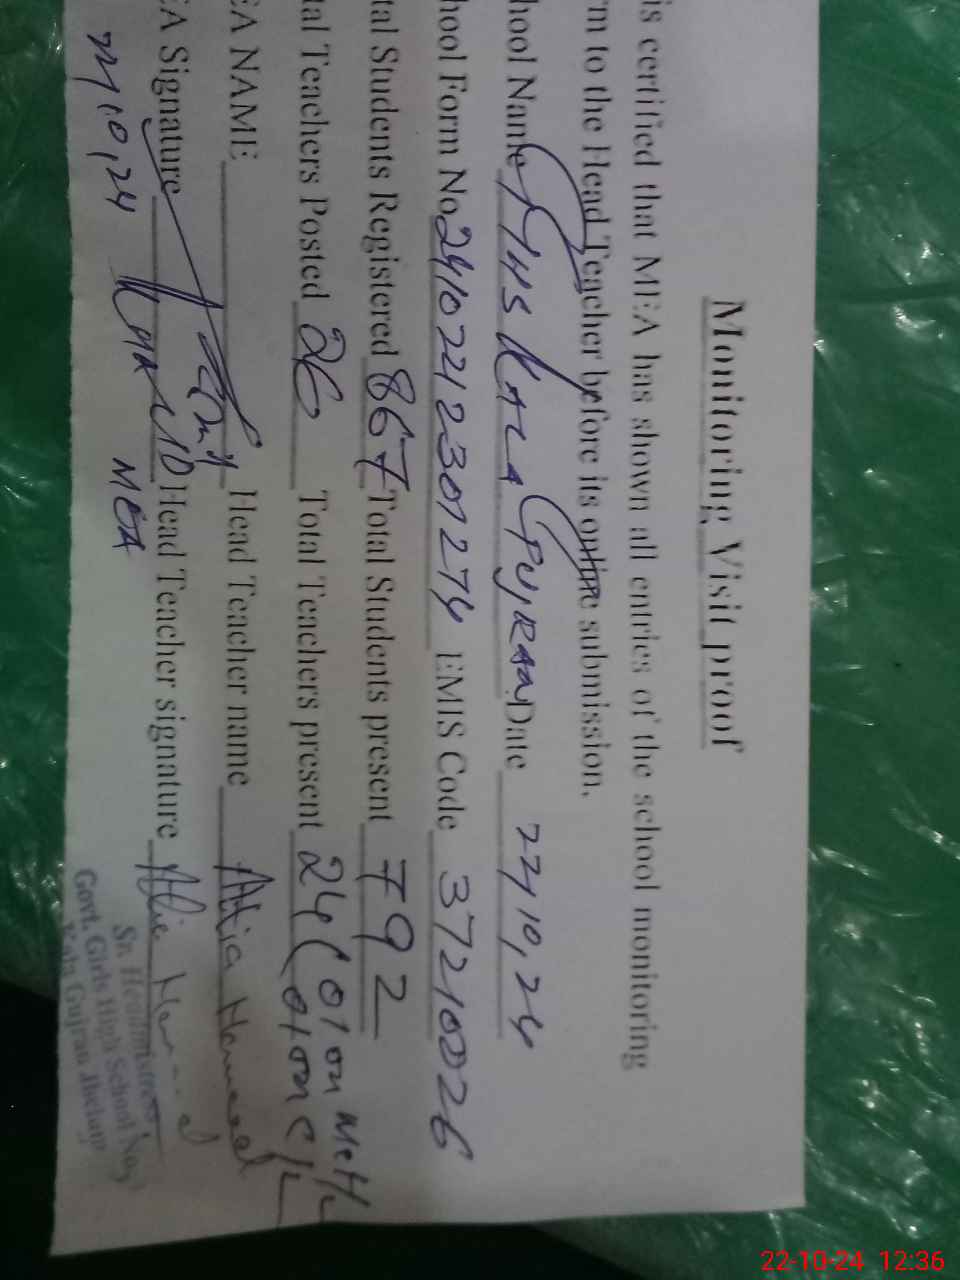 Monitoring Visit proof
is certified that MEA has shown all entries of the school monitoring
rm to the Head Teacher before its online submission.
hool Name GHS KALA GUJRAN Date 22,10,24
hool Form No 24102212301274 EMIS Code 37210026
tal Students Registered 867 Total Students present 792
tal Teachers Posted 26 Total Teachers present 24 (01 on Met/L
01 on C/L
EA NAME Head Teacher name Attia
EA Signature Head Teacher signature
22,10,24 MEA
Sr. Headmistress
Govt. Girls High School No.
Kala Gujran Jhelum
22-10-24 12:36